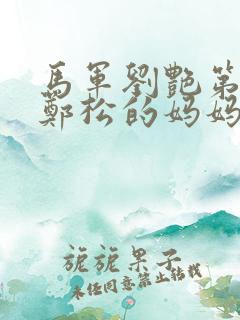 馬軍劉艷第
鄭松的妈妈
旎旎果子
未经同意禁止转载